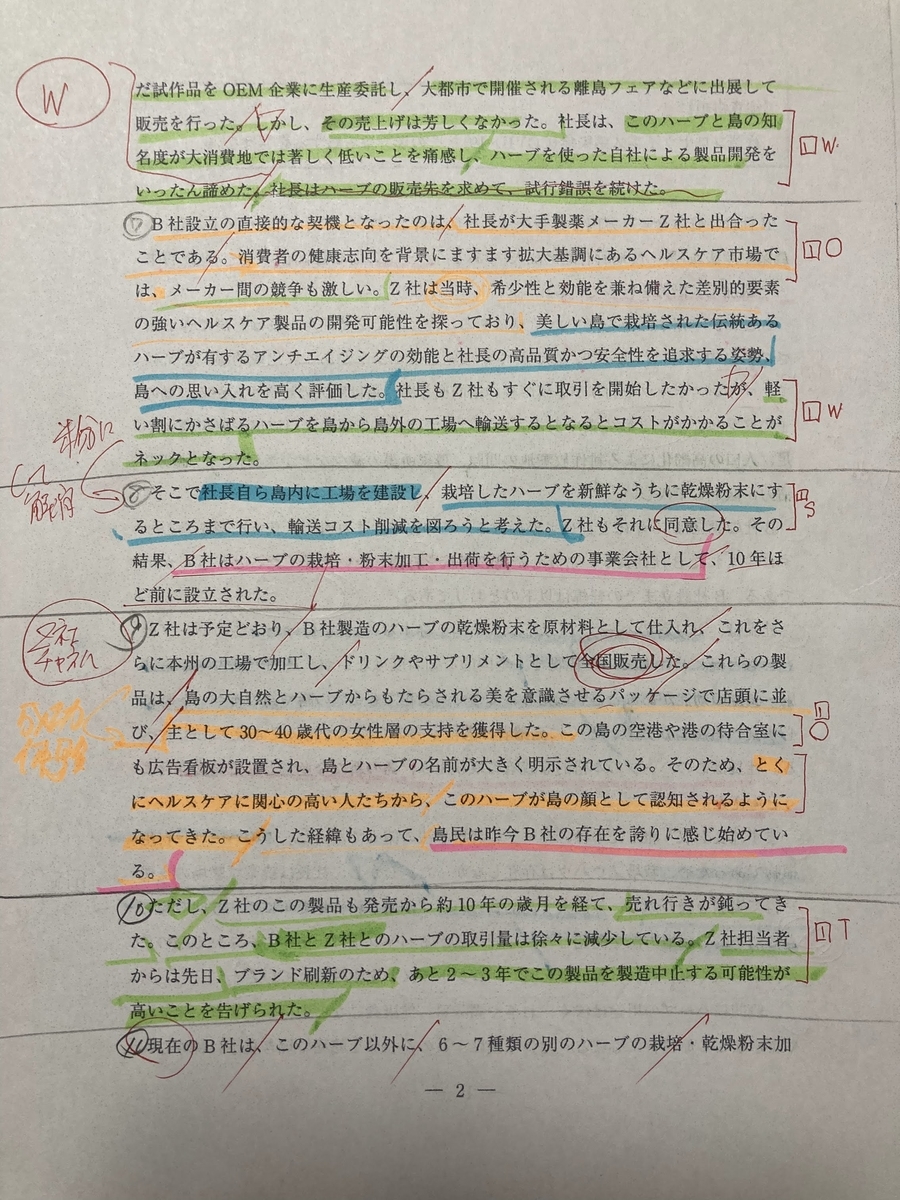 W
だ試作品を OEM 企業に生産委託し、大都市で開催される離島フェアなどに出展して
販売を行った。しかし、その売上げは芳しくなかった。社長は、このハーブと島の知
1 W
名度が大消費地では著しく低いことを痛感し、ハーブを使った自社による製品開発を
いったん諦めた。社長はハーブの販売先を求めて、試行錯誤を続けた。
⑦ B 社設立の直接的な契機となったのは、社長が大手製薬メーカー Z 社と出合った
ことである。消費者の健康志向を背景にますます拡大基調にあるヘルスケア市場で
1 O
は、メーカー間の競争も激しい。Z 社は当時、希少性と効能を兼ね備えた差別的要素
の強いヘルスケア製品の開発可能性を探っており、美しい島で栽培された伝統ある
ハーブが有するアンチエイジングの効能と社長の高品質かつ安全性を追求する姿勢、
島への思い入れを高く評価した。社長も Z 社もすぐに取引を開始したかったが、軽
い割にかさばるハーブを島から島外の工場へ輸送するとなるとコストがかかることが
1 W
ネックとなった。
⑧ そこで社長自ら島内に工場を建設し、栽培したハーブを新鮮なうちに乾燥粉末にす
S
るところまで行い、輸送コスト削減を図ろうと考えた。Z 社もそれに同意した。その
結果、B 社はハーブの栽培・粉末加工・出荷を行うための事業会社として、10 年ほ
ど前に設立された。
Z社
⑨ Z 社は予定どおり、B 社製造のハーブの乾燥粉末を原材料として仕入れ、これをさ
らに本州の工場で加工し、ドリンクやサプリメントとして全国販売した。これらの製
品は、島の大自然とハーブからもたらされる美を意識させるパッケージで店頭に並
び、主として 30〜40 歳代の女性層の支持を獲得した。この島の空港や港の待合室に
1 O
も広告看板が設置され、島とハーブの名前が大きく明示されている。そのため、とく
にヘルスケアに関心の高い人たちから、このハーブが島の顔として認知されるように
なってきた。こうした経緯もあって、島民は昨今 B 社の存在を誇りに感じ始めてい
る。
⑩ ただし、Z 社のこの製品も発売から約 10 年の歳月を経て、売れ行きが鈍ってき
た。このところ、B 社と Z 社とのハーブの取引量は徐々に減少している。Z 社担当者
1 T
からは先日、ブランド刷新のため、あと 2〜3 年でこの製品を製造中止する可能性が
高いことを告げられた。
⑪ 現在の B 社は、このハーブ以外に、6〜7 種類の別のハーブの栽培・乾燥粉末加
— 2 —